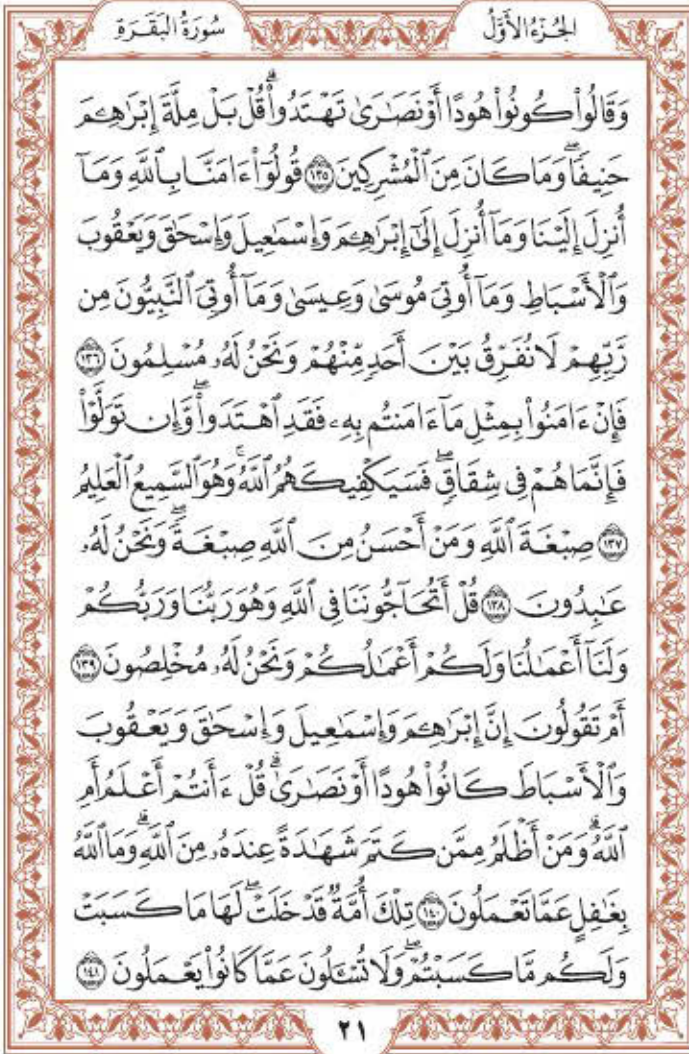 الجُزْءُ الأَوَّلُ
سُورَةُ البَقَرَةِ
وَقَالُوا۟ كُونُوا۟ هُودًا أَوْ نَصَٰرَىٰ تَهْتَدُوا۟ ۗ قُلْ بَلْ مِلَّةَ إِبْرَٰهِـۧمَ
حَنِيفًا ۖ وَمَا كَانَ مِنَ ٱلْمُشْرِكِينَ ۝١٣٥ قُولُوٓا۟ ءَامَنَّا بِٱللَّهِ وَمَآ
أُنزِلَ إِلَيْنَا وَمَآ أُنزِلَ إِلَىٰٓ إِبْرَٰهِـۧمَ وَإِسْمَٰعِيلَ وَإِسْحَٰقَ وَيَعْقُوبَ
وَٱلْأَسْبَاطِ وَمَآ أُوتِىَ مُوسَىٰ وَعِيسَىٰ وَمَآ أُوتِىَ ٱلنَّبِيُّونَ مِن
رَّبِّهِمْ لَا نُفَرِّقُ بَيْنَ أَحَدٍ مِّنْهُمْ وَنَحْنُ لَهُۥ مُسْلِمُونَ ۝١٣٦
فَإِنْ ءَامَنُوا۟ بِمِثْلِ مَآ ءَامَنتُم بِهِۦ فَقَدِ ٱهْتَدَوا۟ ۖ وَّإِن تَوَلَّوْا۟
فَإِنَّمَا هُمْ فِى شِقَاقٍ ۖ فَسَيَكْفِيكَهُمُ ٱللَّهُ ۚ وَهُوَ ٱلسَّمِيعُ ٱلْعَلِيمُ
۝١٣٧ صِبْغَةَ ٱللَّهِ ۖ وَمَنْ أَحْسَنُ مِنَ ٱللَّهِ صِبْغَةً ۖ وَنَحْنُ لَهُۥ
عَٰبِدُونَ ۝١٣٨ قُلْ أَتُحَآجُّونَنَا فِى ٱللَّهِ وَهُوَ رَبُّنَا وَرَبُّكُمْ
وَلَنَآ أَعْمَٰلُنَا وَلَكُمْ أَعْمَٰلُكُمْ وَنَحْنُ لَهُۥ مُخْلِصُونَ ۝١٣٩
أَمْ تَقُولُونَ إِنَّ إِبْرَٰهِـۧمَ وَإِسْمَٰعِيلَ وَإِسْحَٰقَ وَيَعْقُوبَ
وَٱلْأَسْبَاطَ كَانُوا۟ هُودًا أَوْ نَصَٰرَىٰ ۗ قُلْ ءَأَنتُمْ أَعْلَمُ أَمِ
ٱللَّهُ ۗ وَمَنْ أَظْلَمُ مِمَّن كَتَمَ شَهَٰدَةً عِندَهُۥ مِنَ ٱللَّهِ ۗ وَمَا ٱللَّهُ
بِغَٰفِلٍ عَمَّا تَعْمَلُونَ ۝١٤٠ تِلْكَ أُمَّةٌ قَدْ خَلَتْ ۖ لَهَا مَا كَسَبَتْ
وَلَكُم مَّا كَسَبْتُمْ ۖ وَلَا تُسْـَٔلُونَ عَمَّا كَانُوا۟ يَعْمَلُونَ ۝١٤١
٢١